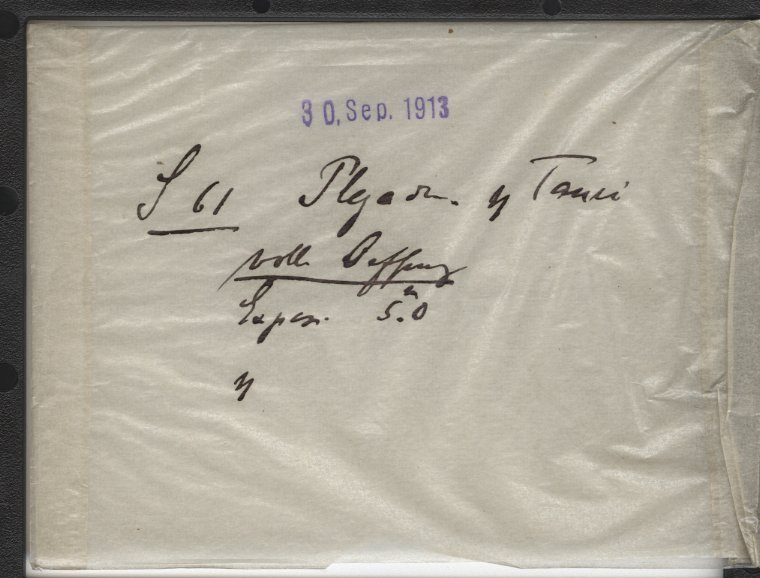 30. Sep. 1913
S 61 Plejadn. η Tauri
volle Oeffnung
Expos. 5.0 m
η